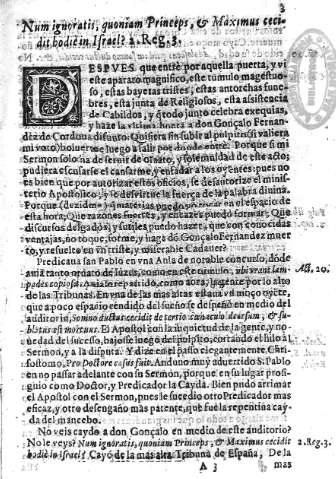 3
Num ignoratis, quoniam Princeps, & Maximus ceci
dit hodiè in Israel? 2. Reg. 3.
DESPVES que entrè por aquella puerta, y vi
este aparato magnifico, este tumulo magestuo
so, estas bayetas tristes, estas antorchas fune
bres, esta junta de Religiosos, esta assistencia
de Cabildos, y q̃ todo junto celebra exequias,
y haze la vltima honra a don Gonçalo Fernan
dez de Cordoua difunto. Quisiera sin subir al pulpito (si valiera
mi voto) boluerme luego a salir por donde entrè. Porque si mi
Sermon solo ha de seruir de ornato, y solemnidad de este acto;
pudiera escusarse el cansarme, y enfadar a los oyentes: pues no
es bien que por autorizar estos oficios, se desautorize el minis-
terio Apostolico, y se desvirtue la fuerça de la palabra diuina.
Porque (dezidme) que materias puedo en el espacio de
esta hora? Que razones fuertes, y eficazes puedo formar? Que
discursos delgados, y sutiles puedo hazer, que con conocidas
ventajas, no toque, forme, y haga dõ Gonçalo Fernandez muer
to, y resuelto en vn triste, y miserable Cadauer?
Predicaua san Pablo en vna Aula de notable concurso, dõde
auia tanto ornato de luzes, como en este tumulo, vbi erant lam-
pades copiosæ. Auiase repartido, como aora, la gẽte por lo alto
de las Tribunas. En vna de las mas altas estaua vn moço oyẽte,
que a poco espacio rendido del sueño se despeñò en medio del
auditorio, Somno ductus cecidit de tertio cœnaculo deorsum, & su-
blatus est mortuus. El Apostol con la inquietud de la gente, y no-
uedad del sucesso, baxose luego del pulpito, cortando el hilo al
Sermon, y a la disputa. Y dize en el passo elegantemente Chri-
sostomo, Pro Doctore casus fuit. Anduuo muy aduertido S. Pablo
en no passar adelante con su Sermon, porque en su lugar prosi-
guio como Doctor, y Predicador la Cayda. Bien pudo arrimar
el Apostol con el Sermon, pues le sucedio otro Predicador mas
eficaz, y otro desengaño mas patente, què fue la repentina cay-
da del mancebo.
No veis caydo a don Gonçalo en medio de este auditorio?
No le veys? Num ignoratis, quoniam Princeps, & Maximus cecidit
hodiè in Israel? Cayò de la mas alta Tribuna de España, De la
A 3 mas
Act. 20.
2. Reg. 3.